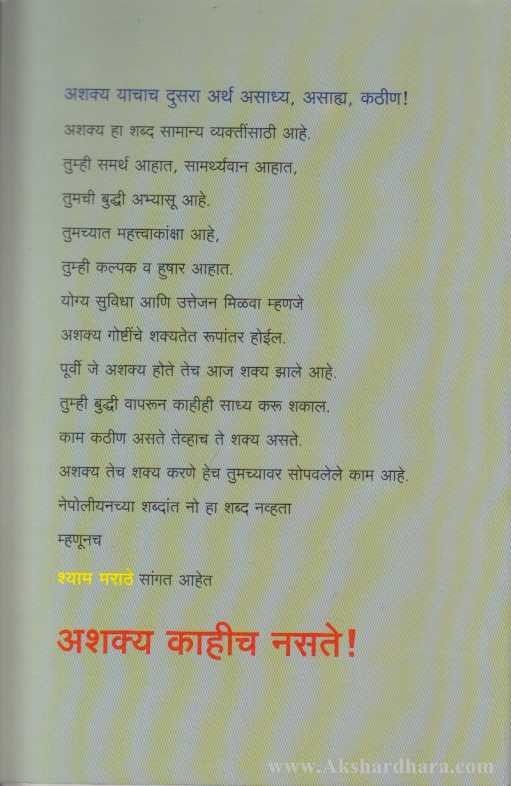 अशक्य याचाच दुसरा अर्थ असाध्य, असाह्य, कठीण!
अशक्य हा शब्द सामान्य व्यक्तींसाठी आहे.
तुम्ही समर्थ आहात, सामर्थ्यवान आहात,
तुमची बुद्धी अभ्यासू आहे.
तुमच्यात महत्त्वाकांक्षा आहे,
तुम्ही कल्पक व हुषार आहात.
योग्य सुविधा आणि उत्तेजन मिळवा म्हणजे
अशक्य गोष्टींचे शक्यतेत रूपांतर होईल.
पूर्वी जे अशक्य होते तेच आज शक्य झाले आहे.
तुम्ही बुद्धी वापरून काहीही साध्य करू शकाल.
काम कठीण असते तेव्हाच ते शक्य असते.
अशक्य तेच शक्य करणे हेच तुमच्यावर सोपवलेले काम आहे.
नेपोलीयनच्या शब्दांत नो हा शब्द नव्हता
म्हणूनच
श्याम मराठे सांगत आहेत
अशक्य काहीच नसते!
www.Akshardhara.com